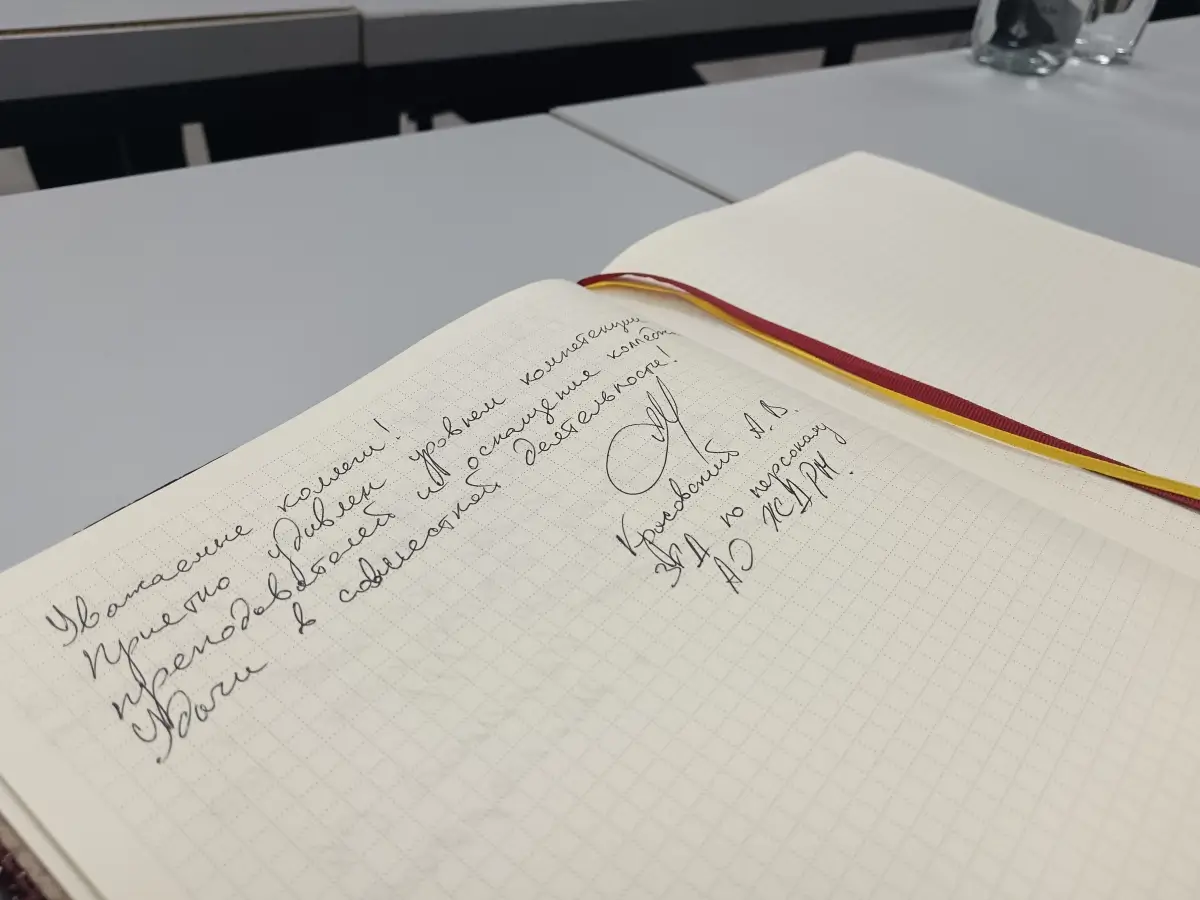 Уважаемые коллеги!
Приятно удивлен уровнем компетенции
преподавателей и оснащения колледжа
Удачи в совместной деятельности!
А.В.
ЗГД по персоналу
АО ЖДРМ.